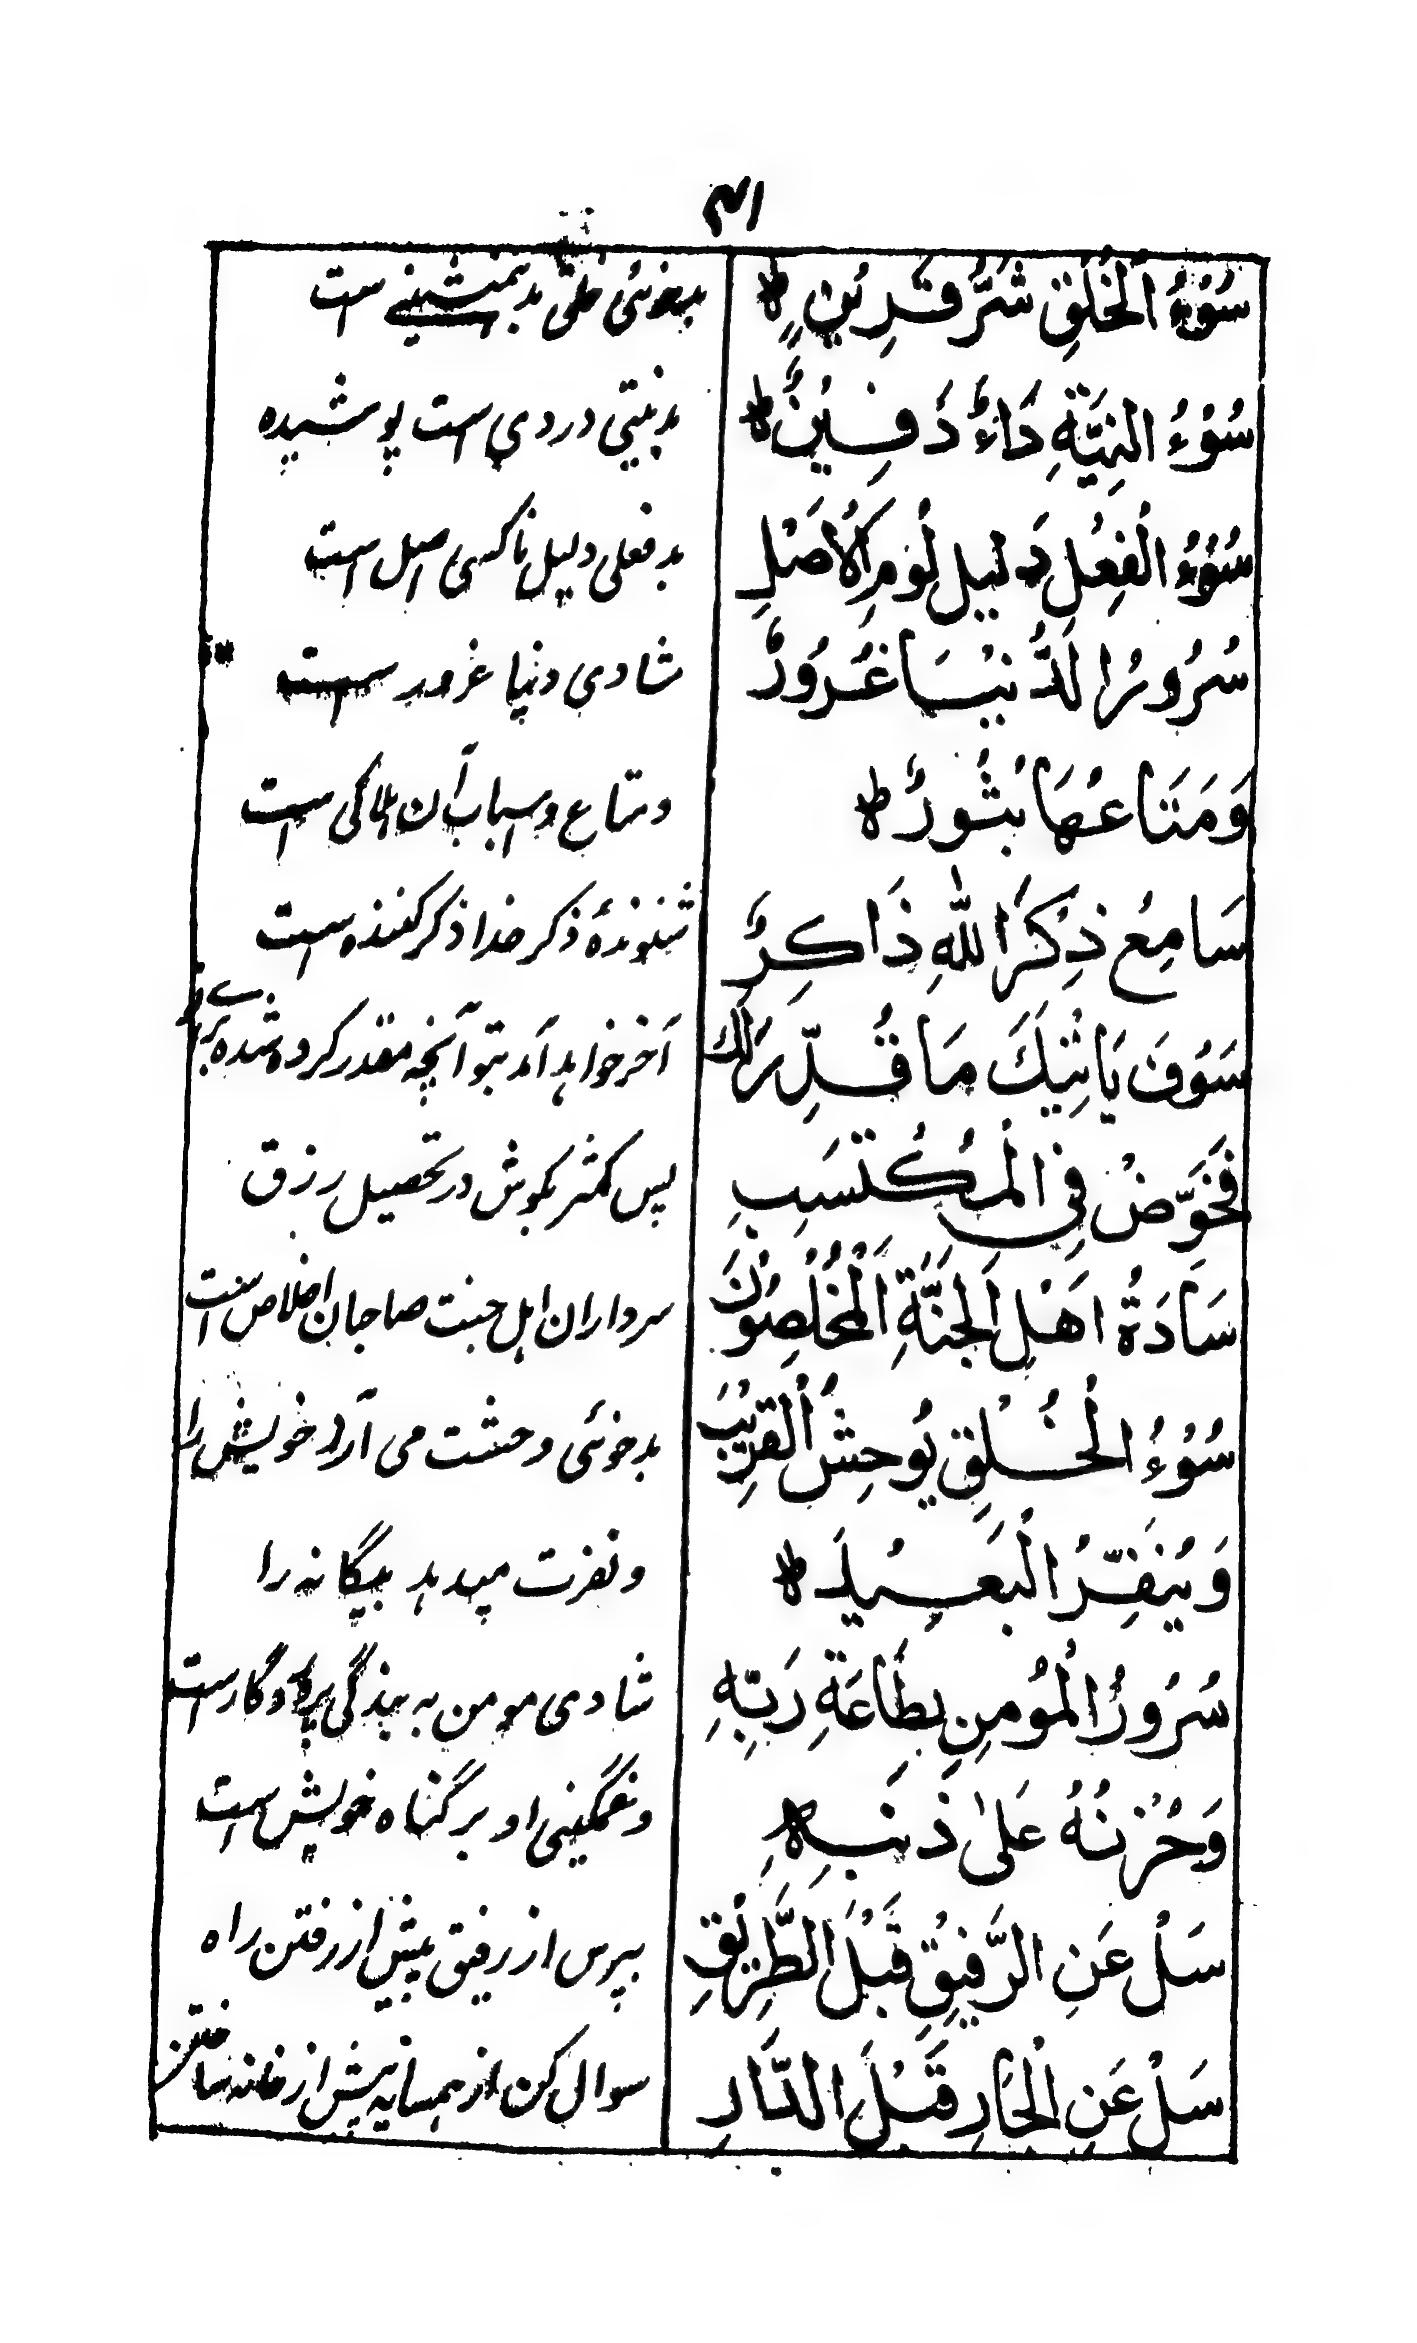 ۴۱
سُوْءُ الْخُلُقِ شَرُّ قَرِيْنٍ ط بدخوئی خلق بد ہمنشینے است
سُوْءُ النِّيَّةِ دَاءٌ دَفِيْنٌ ط بدنیتی دردی است پوشیده
سُوْءُ الْفِعْلِ دَلِيْلُ لُومِ الْاَصْلِ بدفعلی دلیل ناکسی اصل است
سُرُورُ الدُّنْيَا غُرُورٌ شادی دنیا غرور است
وَمَتَاعُهَا ثُبُورٌ ط و متاع و اسباب آن ہلاکی است
سَامِعُ ذِكْرِ اللّٰهِ ذَاكِرٌ شنوندهٔ ذکر خدا ذکر کننده است
سَوْفَ يَاتِيْكَ مَا قُدِّرَ لَكَ آخر خواہد آمد بتو آنچہ مقدر کرده شده برای تو
فَخَوِّضْ فِي الْمُكْتَسَبِ پس کمتر بکوش در تحصیل رزق
سَادَةُ اَهْلِ الْجَنَّةِ الْمُخْلِصُوْنَ سرداران اہل جنت صاحبان اخلاص است
سُوْءُ الْخُلْقِ يُوحِشُ الْقَرِيْبَ بدخوئی وحشت می آرد خویش را
وَيُنَفِّرُ الْبَعِيْدَ ط و نفرت میدہد بیگانہ را
سُرُورُ الْمُومِنِ بِطَاعَةِ رَبِّهِ شادی مومن بہ بندگی پروردگار است
وَحُزْنُهُ عَلىٰ ذَنْبِهِ ط و غمگینی او بر گناه خویش است
سَلْ عَنِ الرَّفِيْقِ قَبْلَ الطَّرِيْقِ بپرس از رفیق پیش از رفتن راه
سَلْ عَنِ الْجَارِ قَبْلَ الدَّارِ سوال کن از ہمسایہ پیش از خانہ ساختن